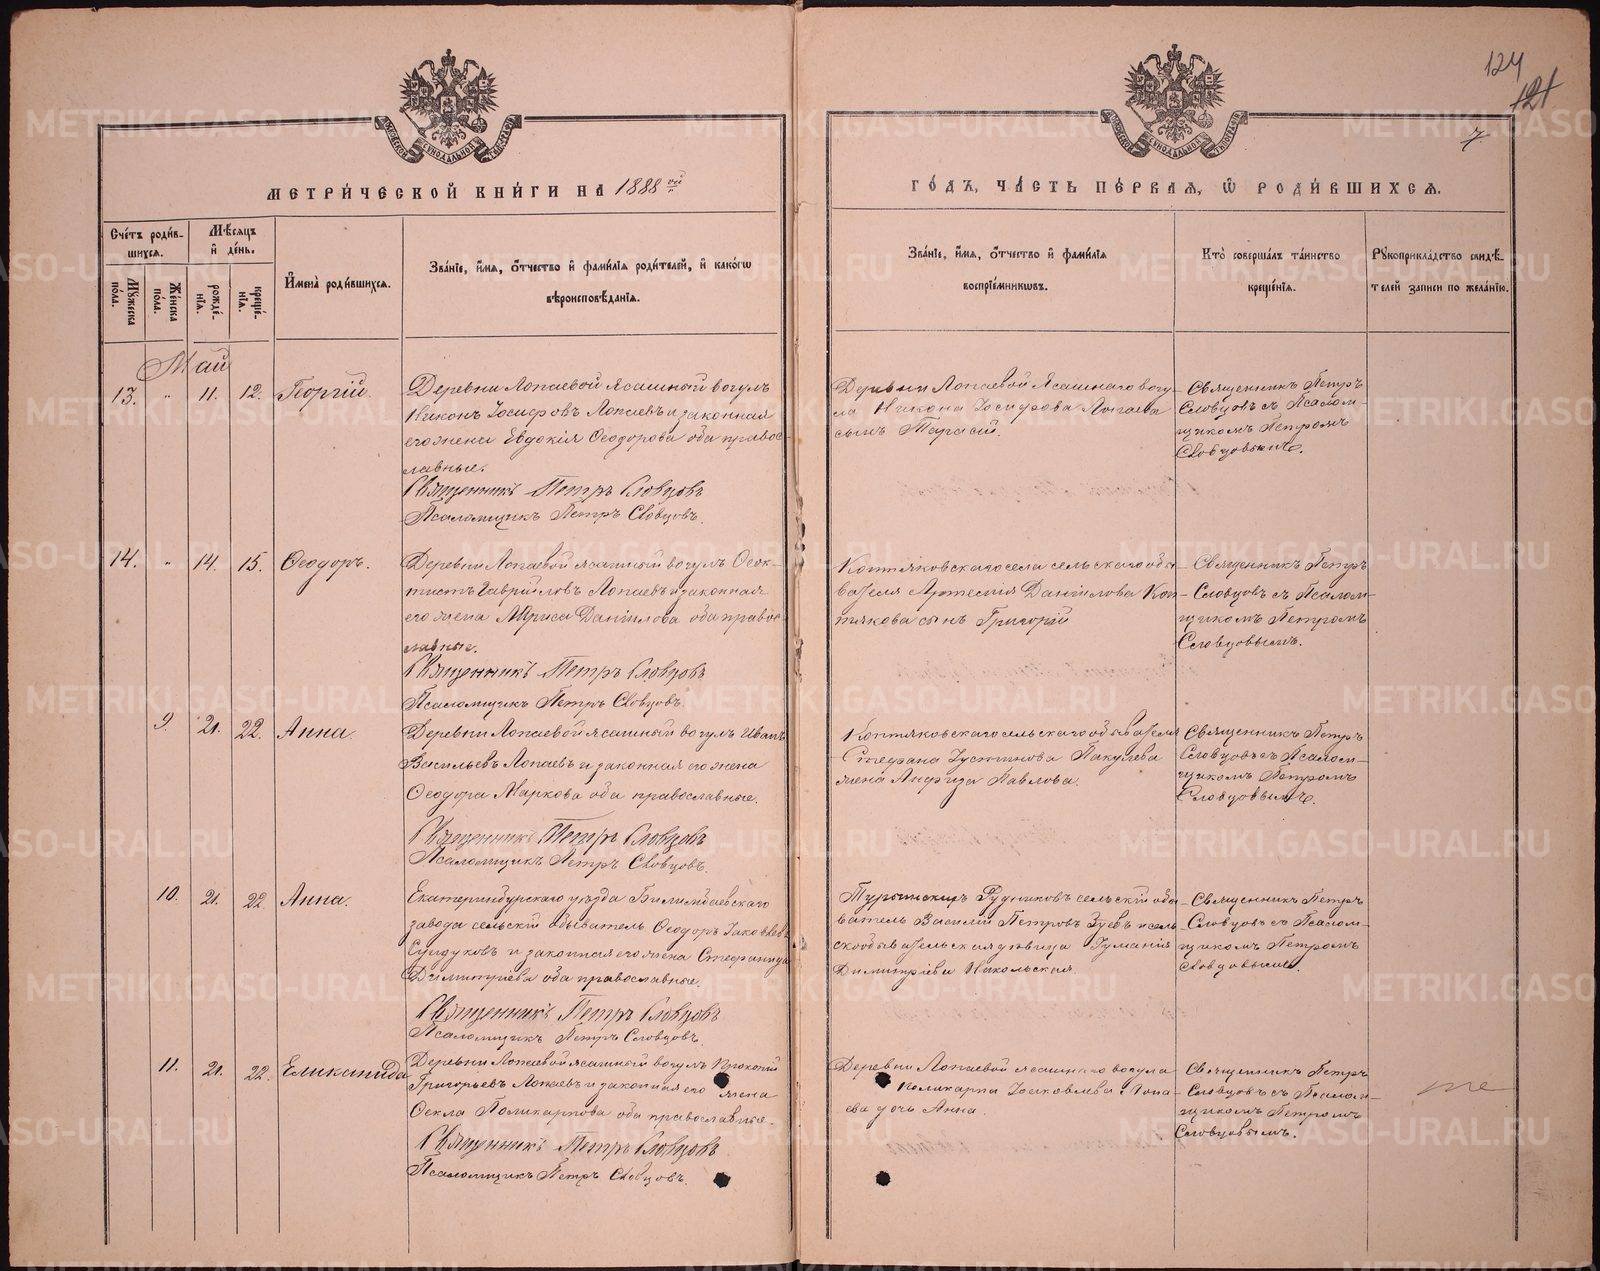 124
121
7.
МОСКОВСКОЙ СУНОДАЛЬНОЙ ТИПОГРАФІИ
МОСКОВСКОЙ СУНОДАЛЬНОЙ ТИПОГРАФІИ
МЕТРИ́ЧЕСКОЙ КНИ́ГИ НА 1888ой
ГО́ДЪ, ЧА́СТЬ ПЕ́РВАЯ, Ѡ РОДИ́ВШИХСЯ.
Сче́тъ роди́в-
шихся.
Му́жеска по́ла.
Же́нска по́ла.
Мѣ́сяцъ
и҆ де́нь.
рожде́-
нїя.
креще́-
нїя.
И҆мена̀ роди́вшихся.
Зва́нїе, и҆́мя, ѻ҆́тчество и҆ фами́лїя роди́телей, и҆ како́гѡ
вѣроисповѣ́данїя.
Зва́нїе, и҆́мя, ѻ҆́тчество и҆ фами́лїя
воспрїе́мникѡвъ.
Кто̀ соверша́лъ та́инство
креще́нїя.
Рꙋкоприкла́дство свидѣ́-
телей за́писи по жела́нїю.
Май
13. " 11. 12. Георгій.
Деревни Лопаевой ясашный вогулъ
Никонъ Іосифовъ Лопаевъ и законная
его жена Евдокія Ѳеодорова оба правос-
лавные.
Священникъ Петръ Словцовъ
Псаломщикъ Петръ Словцовъ.
Деревни Лопаевой ясашнаго вогу-
ла Никона Іосифова Лопаева
сынъ Тарасій.
Священникъ Петръ
Словцовъ съ Псалом-
щикомъ Петромъ
Словцовымъ.
14. " 14. 15. Ѳеодоръ.
Деревни Лопаевой ясашный вогулъ Ѳеок-
тистъ Гавріиловъ Лопаевъ и законная
его жена Даніилова оба правос-
лавные.
Священникъ Петръ Словцовъ
Псаломщикъ Петръ Словцовъ.
Коптяковскаго села сельскаго обы-
вателя Артемія Даніилова Коп-
тякова сынъ Григорій
Священникъ Петръ
Словцовъ съ Псалом-
щикомъ Петромъ
Словцовымъ.
9. 21. 22. Анна.
Деревни Лопаевой ясашный вогулъ Иванъ
Васильевъ Лопаевъ и законная его жена
Ѳеодора Маркова оба православные.
Священникъ Петръ Словцовъ
Псаломщикъ Петръ Словцовъ.
Коптяковскаго сельскаго обывателя
Стефана Іустинова Пакулева
жена Павлова.
Священникъ Петръ
Словцовъ съ Псалом-
щикомъ Петромъ
Словцовымъ.
10. 21. 22. Анна.
Екатеринбурскаго уѣзда Билимбаевскаго
завода сельскій обыватель Ѳеодоръ Іаковлевъ
и законная его жена Стефанида
Димитріева оба православные.
Священникъ Петръ Словцовъ
Псаломщикъ Петръ Словцовъ.
Турьинскихъ Рудниковъ сельскій обы-
ватель Василій Петровъ Зуевъ и сель-
скообывательская дѣвица
Димитріева Никольская.
Священникъ Петръ
Словцовъ съ Псалом-
щикомъ Петромъ
Словцовымъ.
11. 21. 22. Еликанида
Деревни Лопаевой ясашный вогулъ Прокопій
Григорьевъ Лопаевъ и законная его жена
Ѳекла Поликарпова оба православные.
Священникъ Петръ Словцовъ
Псаломщикъ Петръ Словцовъ.
Деревни Лопаевой ясашнаго вогула
Поликарпа Іаковлева Лопа-
ева дочь Анна.
Священникъ Петръ
Словцовъ съ Псалом-
щикомъ Петромъ
Словцовымъ.
METRIKI.GASO-URAL.RU